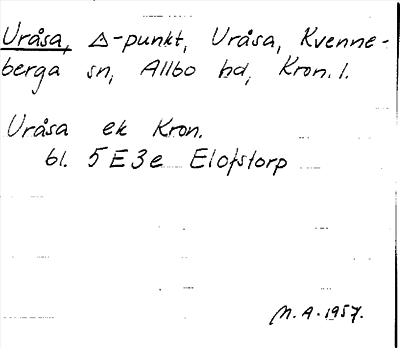 Uråsa, △-punkt, Uråsa, Kvenne-
berga sn, Allbo hd, Kron. l.
Uråsa ek Kron.
bl. 5E3e Elofstorp
M.A. 1957.